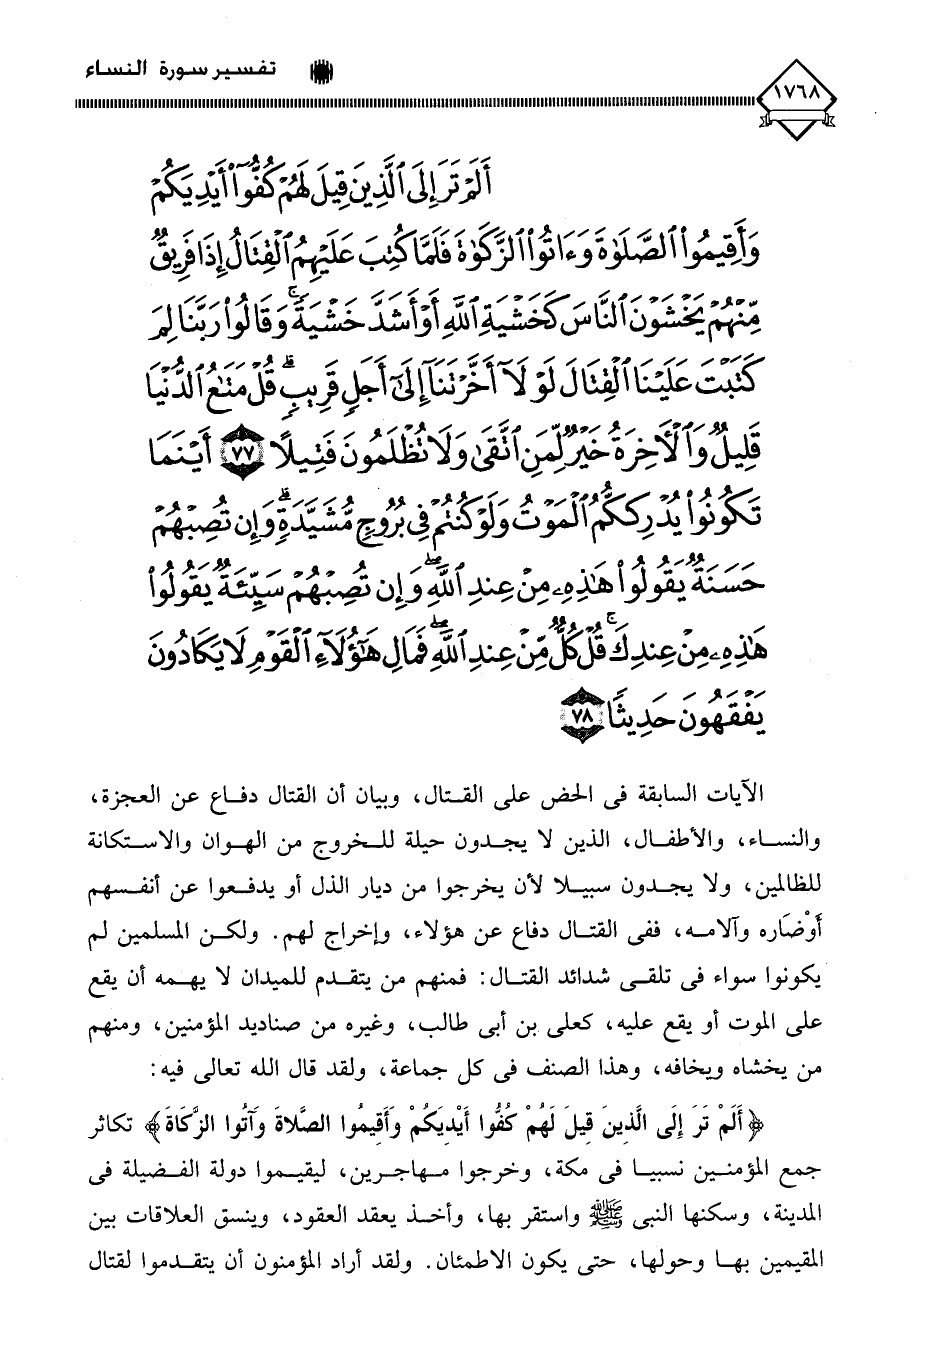 تفسير سورة النساء
١٧٦٨
أَلَمْ تَرَ إِلَى ٱلَّذِينَ قِيلَ لَهُمْ كُفُّوٓا۟ أَيْدِيَكُمْ
وَأَقِيمُوا۟ ٱلصَّلَوٰةَ وَءَاتُوا۟ ٱلزَّكَوٰةَ فَلَمَّا كُتِبَ عَلَيْهِمُ ٱلْقِتَالُ إِذَا فَرِيقٌ
مِّنْهُمْ يَخْشَوْنَ ٱلنَّاسَ كَخَشْيَةِ ٱللَّهِ أَوْ أَشَدَّ خَشْيَةً ۚ وَقَالُوا۟ رَبَّنَا لِمَ
كَتَبْتَ عَلَيْنَا ٱلْقِتَالَ لَوْلَآ أَخَّرْتَنَآ إِلَىٰٓ أَجَلٍ قَرِيبٍ ۗ قُلْ مَتَٰعُ ٱلدُّنْيَا
قَلِيلٌ وَٱلْءَاخِرَةُ خَيْرٌ لِّمَنِ ٱتَّقَىٰ وَلَا تُظْلَمُونَ فَتِيلًا ٧٧ أَيْنَمَا
تَكُونُوا۟ يُدْرِككُّمُ ٱلْمَوْتُ وَلَوْ كُنتُمْ فِى بُرُوجٍ مُّشَيَّدَةٍ ۗ وَإِن تُصِبْهُمْ
حَسَنَةٌ يَقُولُوا۟ هَٰذِهِۦ مِنْ عِندِ ٱللَّهِ ۖ وَإِن تُصِبْهُمْ سَيِّئَةٌ يَقُولُوا۟
هَٰذِهِۦ مِنْ عِندِكَ ۚ قُلْ كُلٌّ مِّنْ عِندِ ٱللَّهِ ۖ فَمَالِ هَٰٓؤُلَآءِ ٱلْقَوْمِ لَا يَكَادُونَ
يَفْقَهُونَ حَدِيثًا ٧٨
الآيات السابقة فى الحض على القتال، وبيان أن القتال دفاع عن العجزة،
والنساء، والأطفال، الذين لا يجدون حيلة للخروج من الهوان والاستكانة
للظالمين، ولا يجدون سبيلا لأن يخرجوا من ديار الذل أو يدفعوا عن أنفسهم
أوْضَاره وآلامه، ففى القتال دفاع عن هؤلاء، وإخراج لهم. ولكن المسلمين لم
يكونوا سواء فى تلقى شدائد القتال: فمنهم من يتقدم للميدان لا يهمه أن يقع
على الموت أو يقع عليه، كعلى بن أبى طالب، وغيره من صناديد المؤمنين، ومنهم
من يخشاه ويخافه، وهذا الصنف فى كل جماعة، ولقد قال الله تعالى فيه:
﴿أَلَمْ تَرَ إِلَى الَّذِينَ قِيلَ لَهُمْ كُفُّوا أَيْدِيَكُمْ وَأَقِيمُوا الصَّلاةَ وَآتُوا الزَّكَاةَ﴾ تكاثر
جمع المؤمنين نسبيا فى مكة، وخرجوا مهاجرين، ليقيموا دولة الفضيلة فى
المدينة، وسكنها النبى ﷺ واستقر بها، وأخذ يعقد العقود، وينسق العلاقات بين
المقيمين بها وحولها، حتى يكون الاطمئان. ولقد أراد المؤمنون أن يتقدموا لقتال